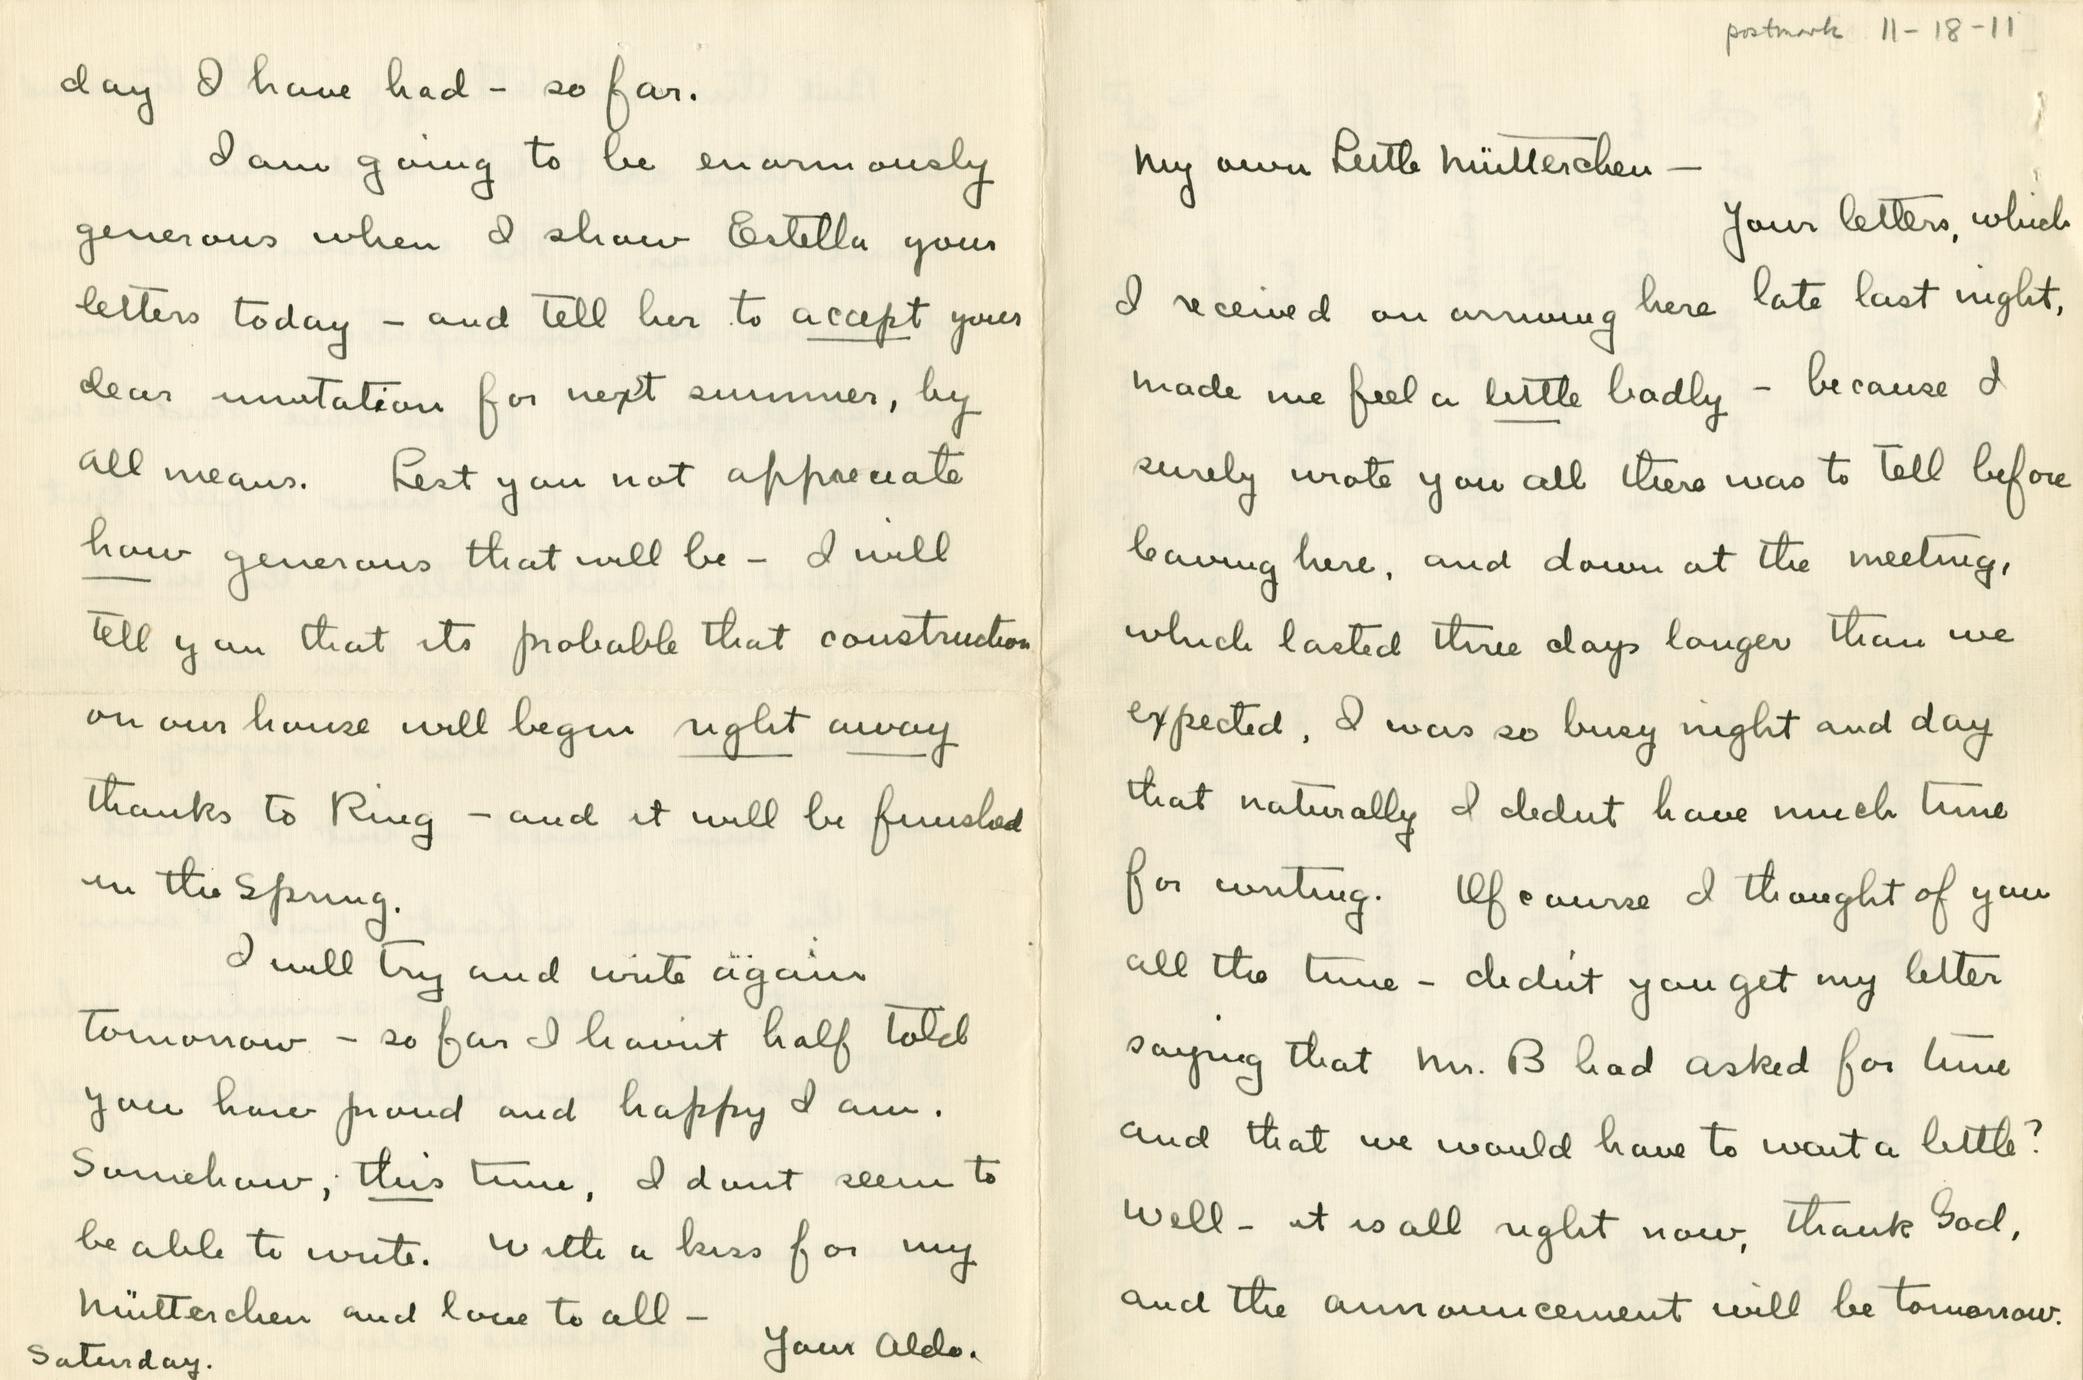 postmark 11-18-11
My own Little Mütterchen —
Your letters, which
I received on arriving here late last night,
made me feel a little badly - because I
surely wrote you all there was to tell before
leaving here, and down at the meeting,
which lasted three days longer than we
expected, I was so busy night and day
that naturally I didnt have much time
for writing. Of course I thought of you
all the time - didn't you get my letter
saying that Mr. B had asked for time
and that we would have to wait a little?
Well - it is all right now, thank God,
and the announcement will be tomorrow.
day I have had - so far.
I am going to be enormously
generous when I show Estella your
letters today - and tell her to accept your
dear invitation for next summer, by
all means. Lest you not appreciate
how generous that will be - I will
tell you that its probable that construction
on our house will begin right away
thanks to Ring - and it will be finished
in the Spring.
I will try and write again
tomorrow - so far I havint half told
you how proud and happy I am.
Somehow, this time, I dont seem to
be able to write. With a kiss for my
Mütterchen and love to all -
Your Aldo.
Saturday.